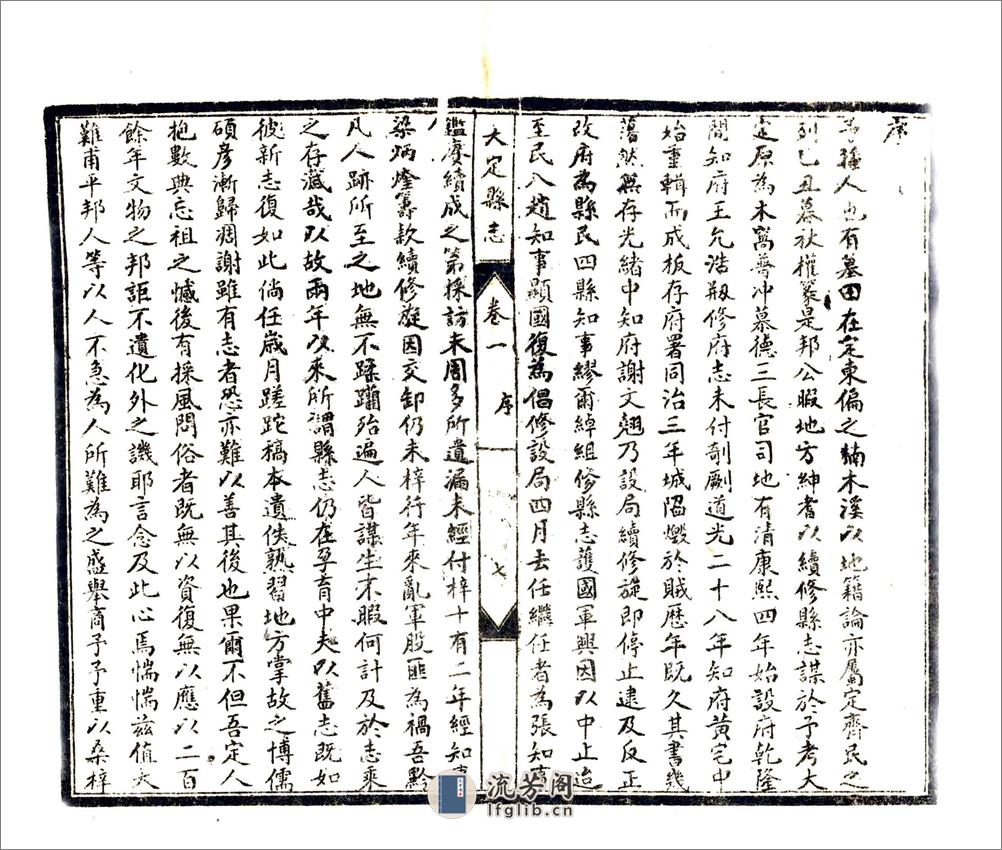 序
人也有墓田在定東偏之楠木溪以地籍論亦屬定齊民之
列乙丑暮秋權篆是邦公暇地方紳耆以續修縣志謀於予考大
定原為木窩普冲慕德三長官司地有清康熙四年始設府乾隆
間知府王允浩剏修府志未付剞劂道光二十八年知府黄宅中
始重輯而成板存府署同治三年城陷燬於賊歷年既久其書幾
蕩然無存光緒中知府謝文翹乃設局續修旋即停止逮及反正
改府為縣民四縣知事繆爾綽組修縣志護國軍興因以中止迨
至民八趙知事顯國復為倡修設局四月去任繼任者為張知事
大定縣志 卷一 序 七
鑑賡續成之第採訪未周多所遺漏未經付梓十有二年經知事
梁炳燈籌款續修旋因交卸仍未梓行年來亂軍股匪為禍吾黔
凡人跡所至之地無不蹂躪殆遍人皆謀生不暇何計及於志乘
之存滅哉以故兩年以來所謂縣志仍在孕育中夫以舊志既如
彼新志復如此倘任歲月蹉跎稿本遺佚熟習地方掌故之博儒
碩彦漸歸凋謝雖有志者恐亦難以善其後也果爾不但吾定人
抱數典忘祖之憾後有採風問俗者既無以資復無以應以二百
餘年文物之邦詎不遺化外之譏耶言念及此心焉惴惴兹值大
難甫平邦人等以人不急為人所難為之盛舉商予予重以桑梓
流芳阁
lfglib.cn